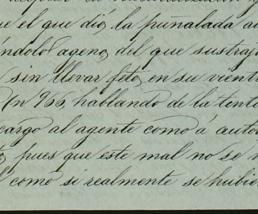 el que dió la puñalada a
ndolo ageno, del que sustra
sin llevar feto en su vient
En 966, hablando de la tent
cargo al agente como á auto
pues que este mal no se
como si realmente se hubie